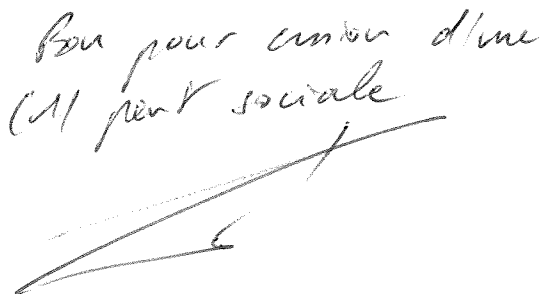 Bon pour cession d'une
(1) part sociale